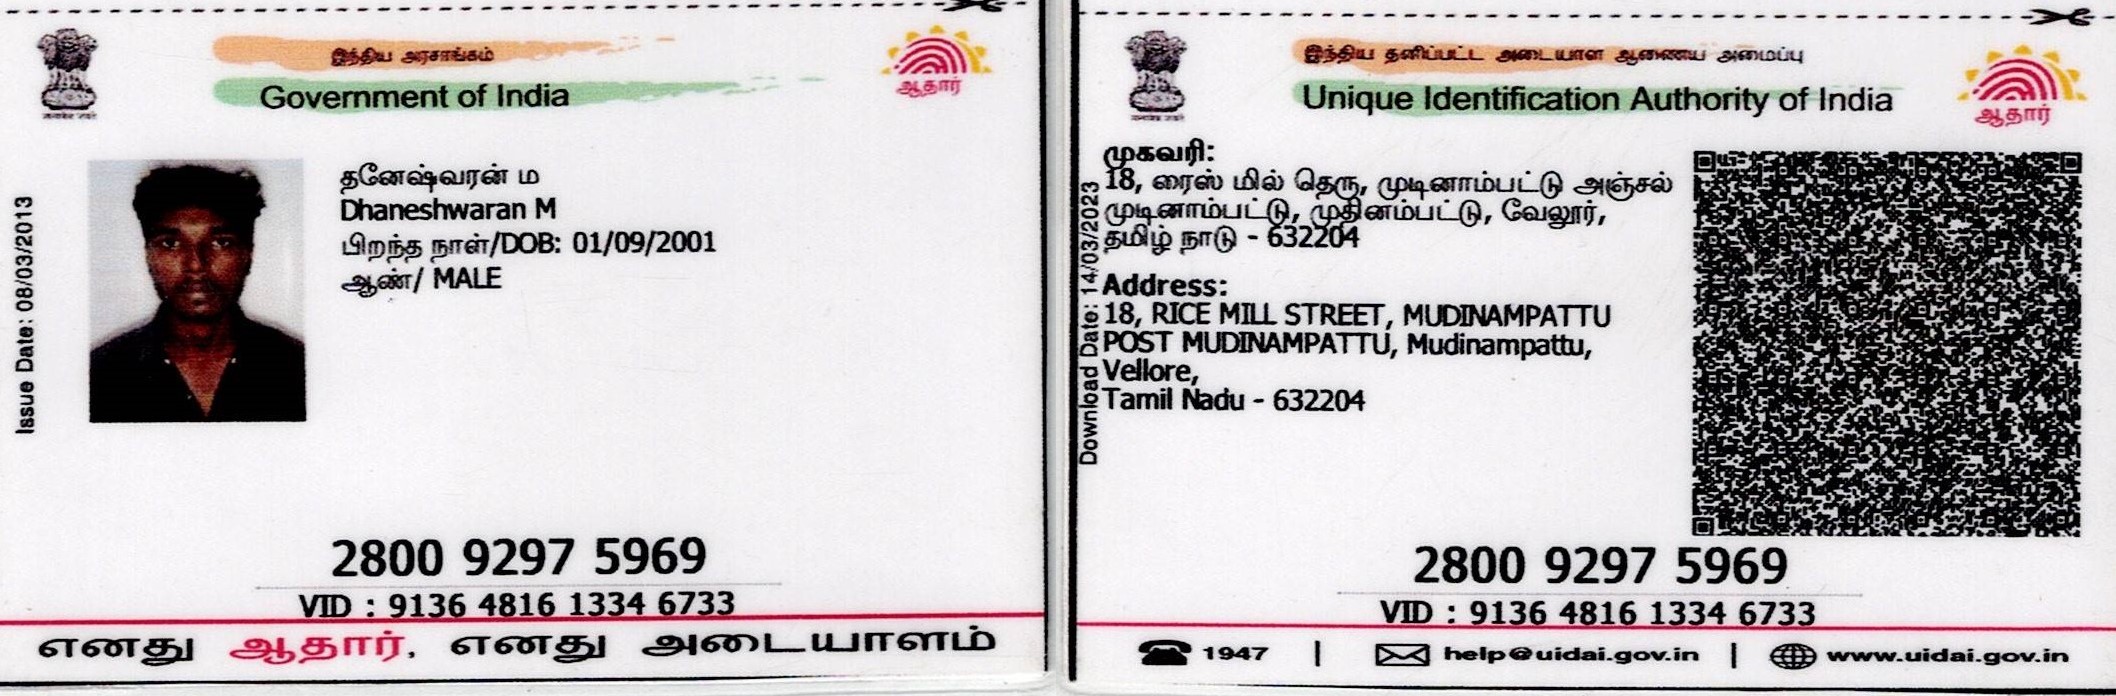 இந்திய அரசாங்கம்
Government of India
ஆதார்
Issue Date: 08/03/2013
தனேஷ்வரன் ம
Dhaneshwaran M
பிறந்த நாள்/DOB: 01/09/2001
ஆண்/ MALE
2800 9297 5969
VID : 9136 4816 1334 6733
எனது ஆதார், எனது அடையாளம்
இந்திய தனிப்பட்ட அடையாள ஆணைய அமைப்பு
Unique Identification Authority of India
ஆதார்
Download Date: 14/03/2023
முகவரி:
18, ரைஸ் மில் தெரு, முடினாம்பட்டு அஞ்சல்
முடினாம்பட்டு, முதினம்பட்டு, வேலூர்,
தமிழ் நாடு - 632204
Address:
18, RICE MILL STREET, MUDINAMPATTU
POST MUDINAMPATTU, Mudinampattu,
Vellore,
Tamil Nadu - 632204
2800 9297 5969
VID : 9136 4816 1334 6733
1947 | help@uidai.gov.in | www.uidai.gov.in